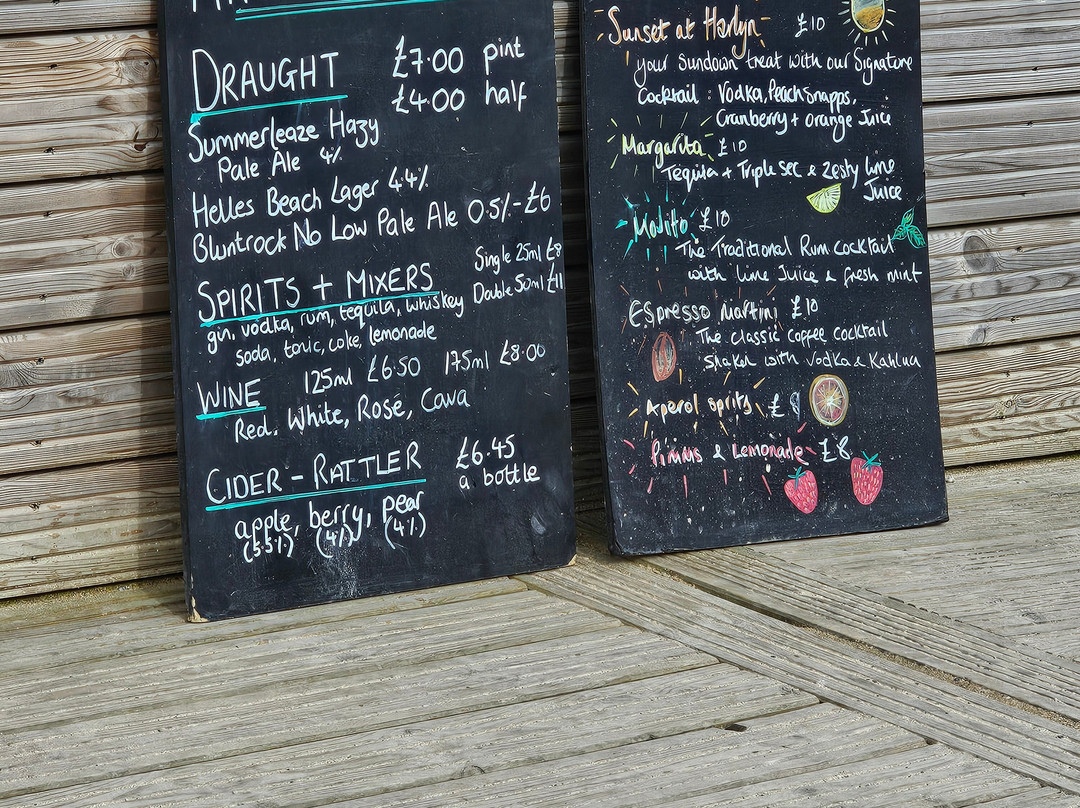 DRAUGHT £7.00 pint
£4.00 half
Summerleaze Hazy
Pale Ale 4%
Helles Beach Lager 4.4%
Bluntrock No Low Pale Ale 0.5% - £6
SPIRITS + MIXERS Single 25ml £8
gin, vodka, rum, tequila, whiskey Double 50ml £11
soda, tonic, coke, lemonade
WINE 125ml £6.50 175ml £8.00
Red, White, Rosé, Cava
CIDER - RATTLER £6.45
a bottle
apple, berry, pear
(5.5%) (4%) (4%)
Sunset at Harlyn £10
your Sundown treat with our Signature
Cocktail: Vodka, Peach Snapps,
Cranberry + orange Juice
Margarita £10
Tequila + Triple sec & zesty lime
Juice
Mojito £10
The Traditional Rum cocktail
with lime Juice & fresh mint
Espresso Martini £10
The classic coffee cocktail
Shaken with vodka & Kahlua
Aperol spritz £9
Pimms & Lemonade £8